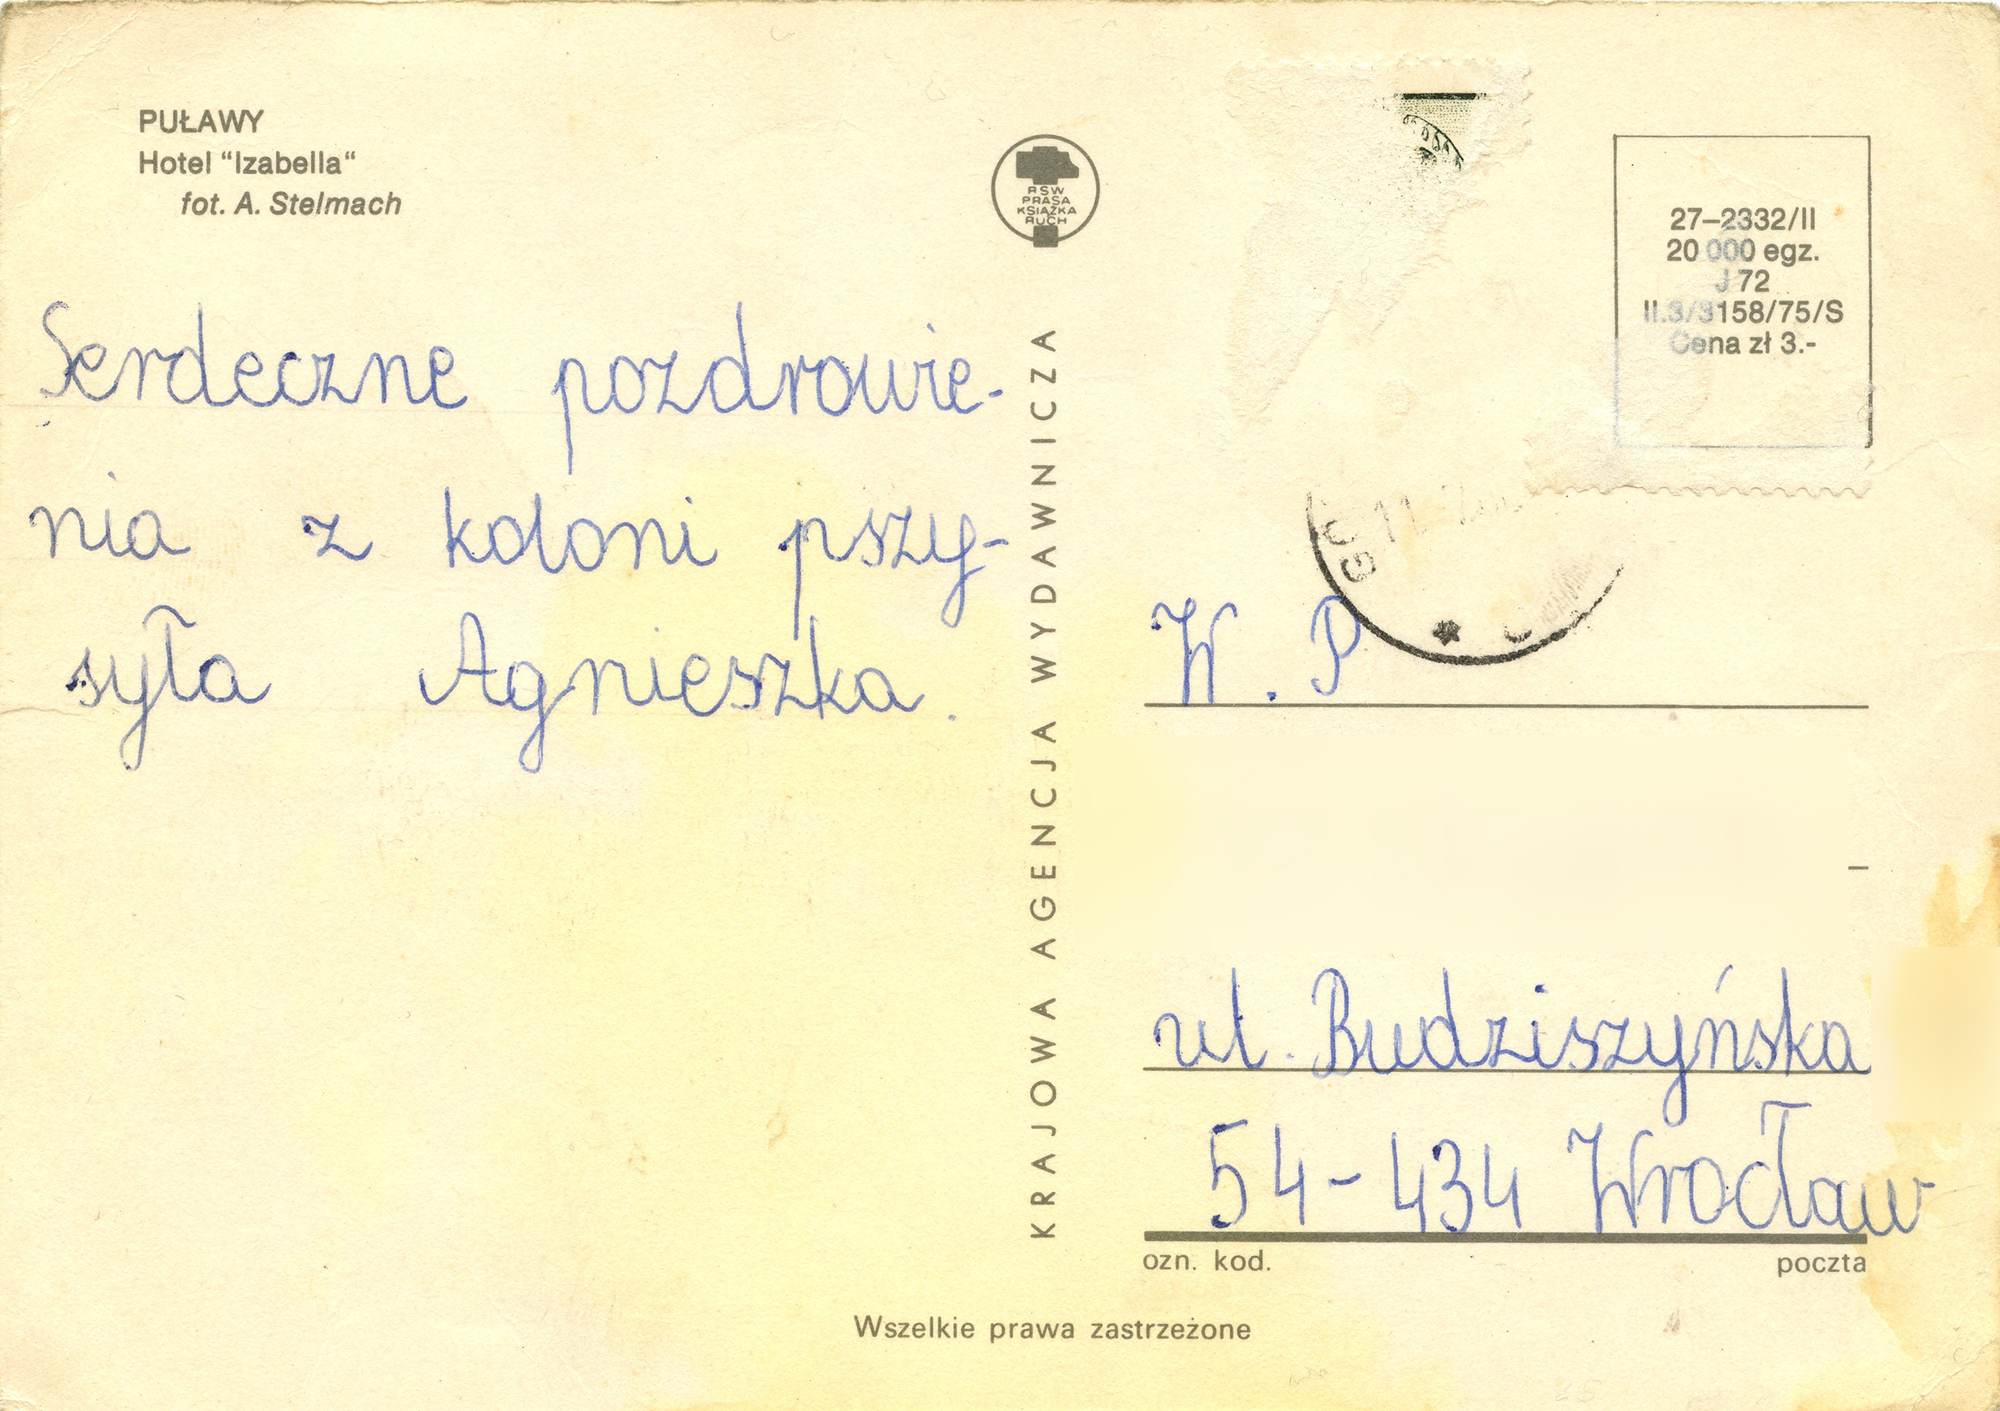 PUŁAWY
Hotel "Izabella"
fot. A. Stelmach
Serdeczne pozdrowie-
nia z koloni pszy-
syła Agnieszka.
RSW
PRASA
KSIĄŻKA
RUCH
KRAJOWA AGENCJA WYDAWNICZA
27–2332/II
20 000 egz.
J 72
II.3/3158/75/S
Cena zł 3.-
W. P
ul. Budziszyńska
54-434 Wrocław
ozn. kod. poczta
Wszelkie prawa zastrzeżone